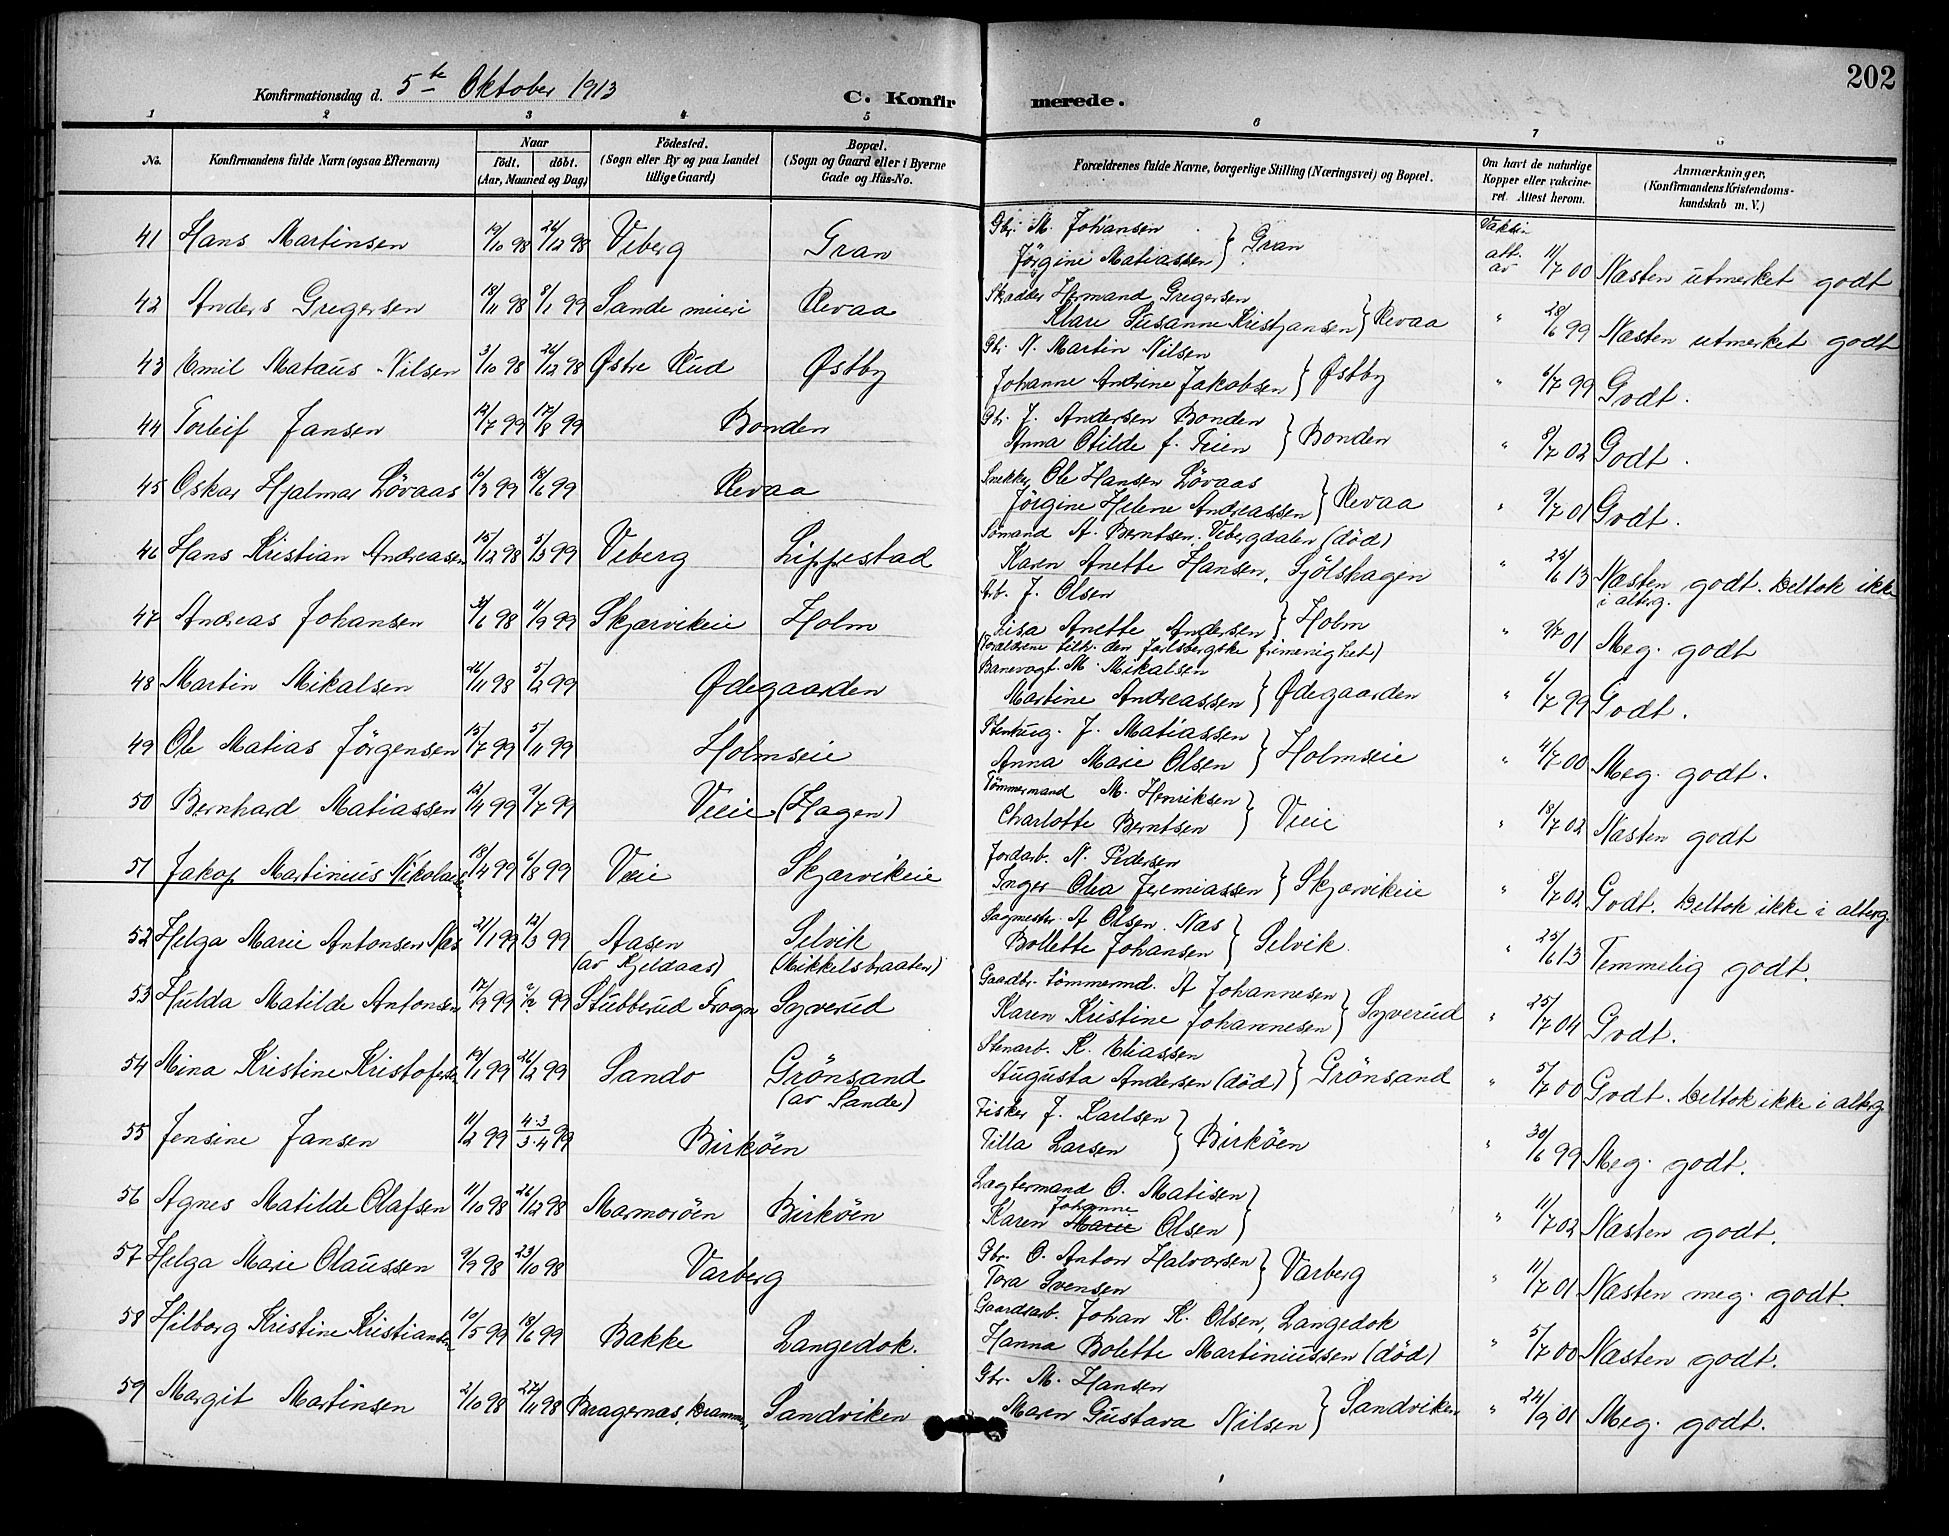 202
Konfirmationsdag d. 5te Oktober 1913
C. Konfirmerede.
1 2 3 4 5 6 7 8
No.
Konfirmandens fulde Navn (ogsaa Efternavn)
Naar
födt. döbt.
(Aar, Maaned og Dag)
Födested.
(Sogn eller By og paa Landet tillige Gaard)
Bopæl.
(Sogn og Gaard eller i Byerne Gade og Hus-No.
Forældrenes fulde Navne, borgerlige Stilling (Næringsvei) og Bopæl.
Om havt de naturlige Kopper eller vakcineret. Attest herom.
Anmærkninger,
(Konfirmandens Kristendomskundskab m. V.)
41 Hans Martinsen 26/12 98 Viberg Gran Gbr. M. Johansen
Jörgine Matiassen } Gran Vakki. att. av 11/7 00 Næsten utmerket godt
42 Anders Gregersen 18/11 98 8/1 99 Sande meieri Revaa Skrædder Hermand Gregersen
Klare Susanne Kristjansen } Revaa " 28/6 99 Næsten utmerket godt
43 Emil Mataus Nilsen 3/10 98 26/12 98 Østre Rud Østby Gbr. N. Martin Nilsen
Johanne Andrine Jakobsen } Østby " 6/7 99 Godt.
44 Torleif Jansen 12/7 99 17/8 99 Bonden Gbr. J. Andersen Bonden
Anna Otilde f. Feien } Bonden " 8/7 02 Godt.
45 Oskar Hjalmar Lövaas 10/3 99 18/6 99 Revaa Snekker Ole Hansen Lövaas
Jörgine Helene Andreassen } Revaa " 9/7 01 Godt.
46 Hans Kristian Andreasen 15/12 98 5/3 99 Viberg Lippestad Sömand A. Berntsen, Vibergdalen (död)
Karen Anette Hansen, Sjölshagen " 25/6 13 Næsten godt. Deltok ikke i alterg.
47 Andreas Johansen 11/9 99 Skjærvikeie Holm Arb. J. Olsen
Lisa Anette Andersen } Holm
(Forældrene tilh. den Jarlsbergske frimenighet) " 9/7 01 Meg. godt
48 Martin Mikalsen 26/11 98 5/2 99 Ødegaarden Banevogt. M. Mikalsen
Martine Andreassen } Ødegaarden " 6/7 99 Godt.
49 Ole Matias Jörgensen 15/7 99 5/11 99 Holmseie Stenhug. J. Matiassen
Anna Marie Olsen } Holmseie " 4/7 00 Meg. godt.
50 Bernhard Matiassen 12/4 99 9/7 99 Veie (Hagen) Tömmermand M. Henriksen
Charlotte Berntsen } Veie " 18/7 02 Næsten godt
51 Jakop Martinius Nikolaisen 18/4 99 6/8 99 Veie Skjærvikeie Jordarb. N. Pedersen
Inger Olia Jeremiassen } Skjærvikeie " 8/7 02 Godt. Deltok ikke i alterg.
52 Helga Marie Antonsen Næs 21/1 99 12/3 99 Aasen (av Kjeldaas) Selvik (Mikkelsbraaten) Sagmestr. A Olsen. Næs
Bollette Johansen } Selvik. " 25/6 13 Temmelig godt.
53 Hulda Matilde Antonsen 99 Stubberud Frogn Syverud Gaadbr. tömmermd. A Johannesen
Karen Kristine Johannesen } Syverud " 25/7 04 Godt.
54 Mina Kristine Kristofersen 19/1 99 26/2 99 Sando Grönsand (av Sande) Stenarb. K. Eliassen
Augusta Andersen (död) } Grönsand " 5/7 00 Godt. Deltok ikke i alterg.
55 Jensine Jansen 11/2 99 4.3/3.4 99 Birköen Fisker J. Karlsen
Tilla Larsen } Birköen " 30/6 99 Meg. godt.
56 Agnes Matilde Olafsen 11/10 98 26/12 98 Marmoröen Birköen Lægtermand O. Matisen
Karen Johanne Marie Olsen } " 11/7 02 Næsten godt.
57 Helga Marie Olaussen 9/9 98 23/10 98 Varberg Gbr. O. Anton Halvorsen
Tora Svensen } Varberg " 11/7 01 Næsten meg. godt.
58 Hilborg Kristine Kristiansen 10/5 99 18/6 99 Bakke Langedok. Gaardsarb. Johan K. Olsen, Langedok
Hanna Bolette Martiniussen (död) " 5/7 00 Næsten godt.
59 Margit Martinsen 2/10 98 27/11 98 Bragernæs, Drammen Sandviken Gbr. M. Hansen
Maren Gustava Nilsen } Sandviken " 24/9 01 Meg. godt.